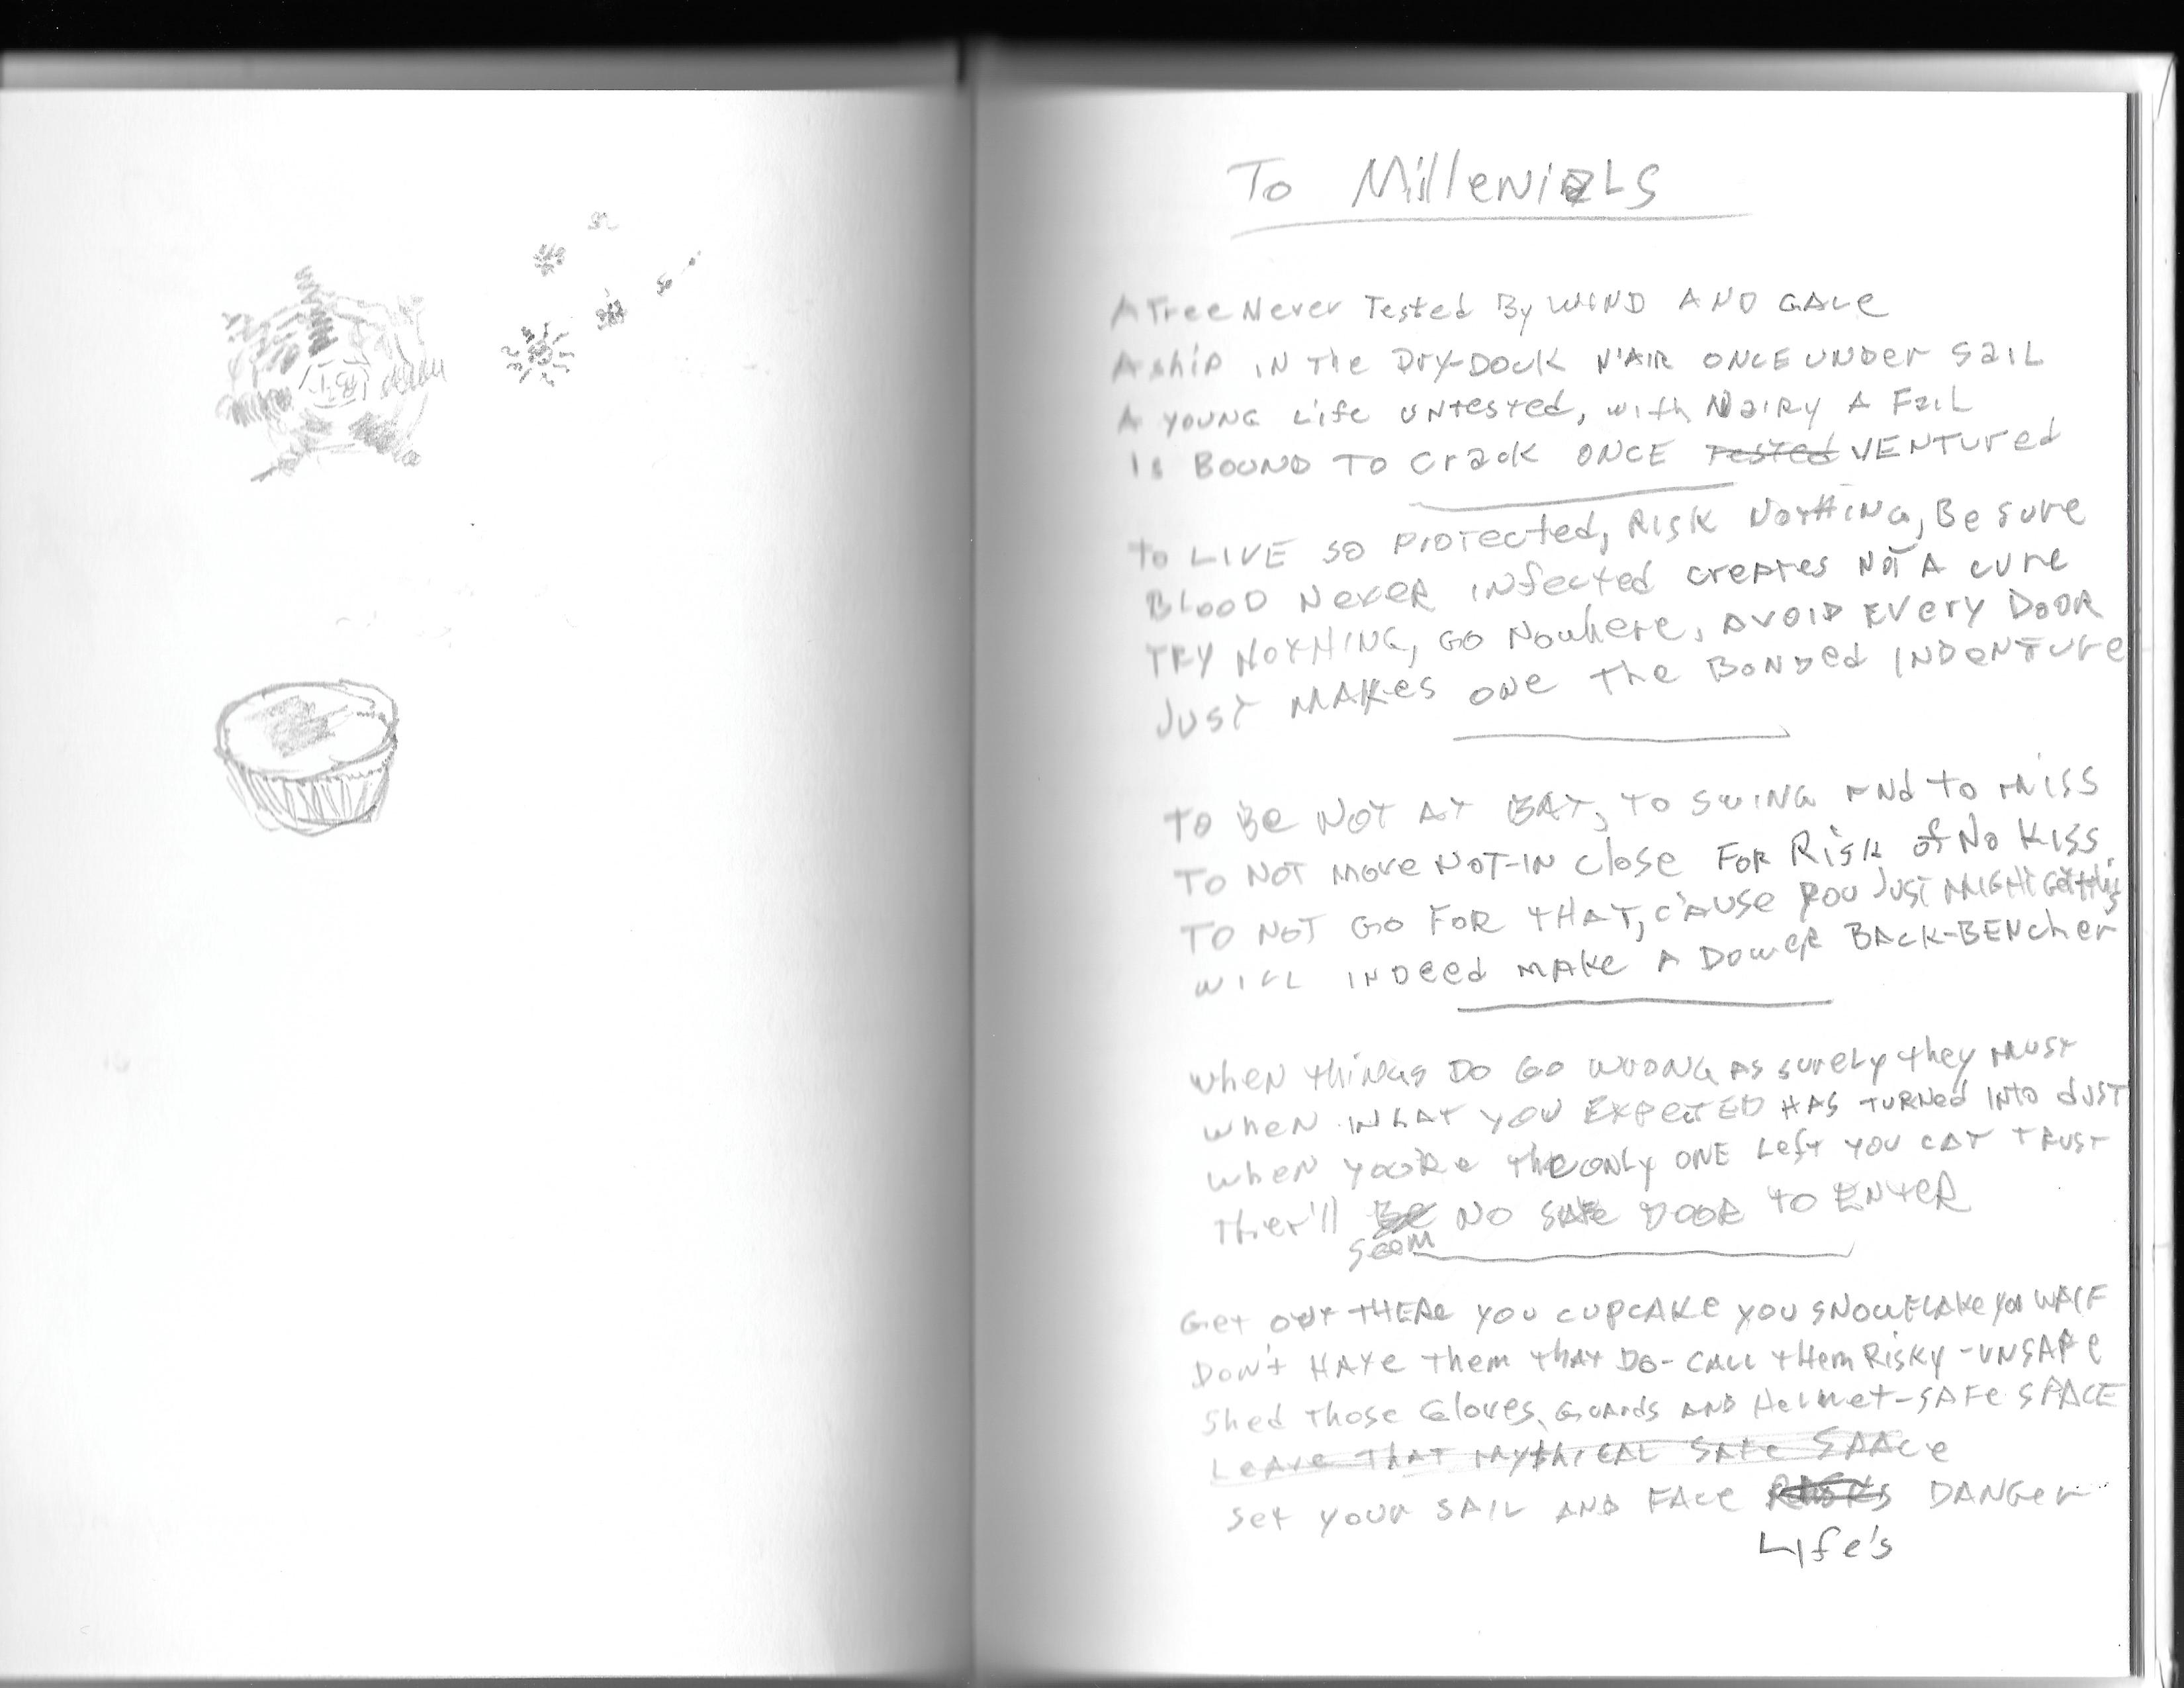 To Millenials
A Tree Never Tested By WIND AND GALE
A ship IN The Dry-Dock N'AIR ONCE UNDer SaiL
A YOUNG Life UNTested, with Nairy A FaiL
Is BOUND TO Crack ONCE Tested VENTUred
To LIVE so Protected, Risk Nothing, Be sure
BLOOD Never infected creates Not A cure
Try Nothing, Go Nowhere, Avoid Every Door
Just MAKes one the Bonded INDENTURE
To Be Not At BAT, To swing and to miss
To Not move Not-IN close For Risk of No Kiss
To Not Go For That, c'ause you Just Might Get this
will indeed make A Dower BACK-BENcher
when things Do Go wrong as surely they must
when what you Expected HAS turned into dust
when you're the only ONE Left you cat trust
Ther'll Be NO safe DOOR TO ENTER
seem
Get out THERe you cupcAKe you snowflake you WAIF
Don't Hate them that Do- CALL them Risky -UNSAFe
Shed those Gloves, Guards AND Helmet-SAFe SPACE
Leave That Mythical Safe SPAce
Set your SAIL AND FAce DANGer
Life's